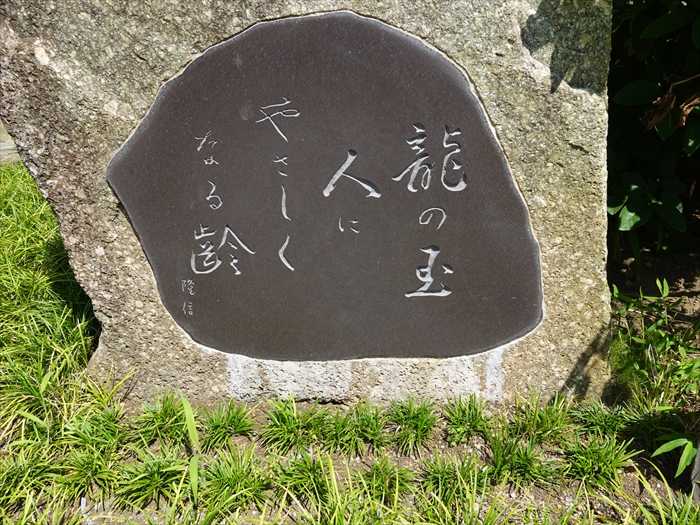 龍の玉
人に
やさしく
なる齢
隆信